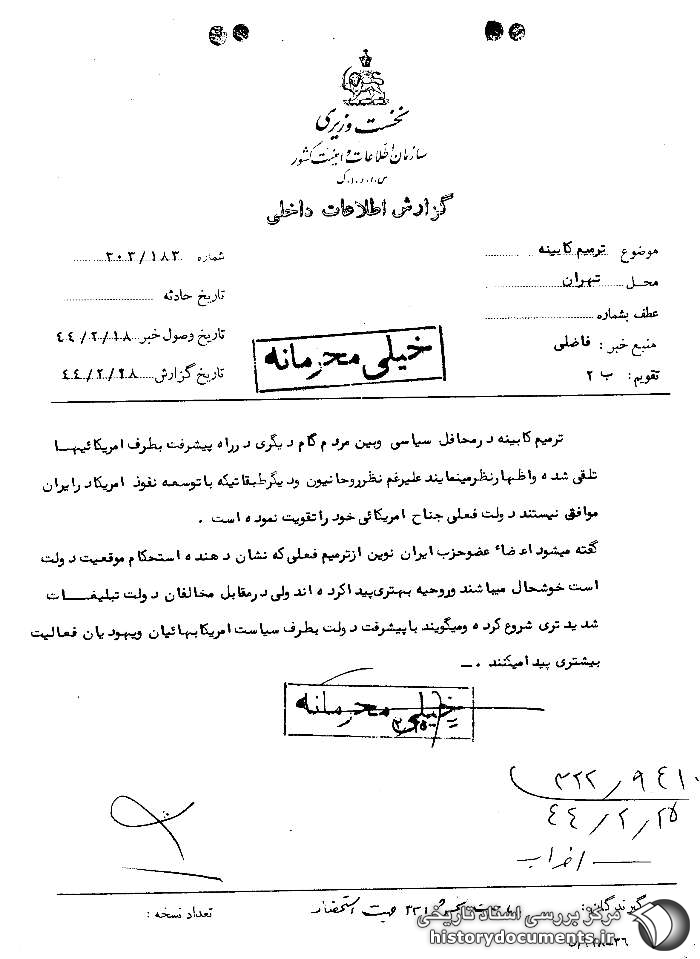 نخست وزیری
سازمان اطلاعات و امنیت کشور
س.ا.و.ا.ک
گزارش اطلاعات داخلی
موضوع ترمیم کابینه
محل تهران
عطف بشماره
منبع خبر : فاضلی
تقویم : ب ۲
شماره ۲۰۳/۱۸۲
تاریخ حادثه
تاریخ وصول خبر ۴۴/۲/۱۸
تاریخ گزارش ۴۴/۲/۲۸
خیلی محرمانه
ترمیم کابینه در محافل سیاسی وبین مردم گام دیگری در راه پیشرفت بطرف امریکائیها
تلقی شده واظهارنظر مینمایند علیرغم نظر روحانیون ودیگر طبقاتیکه با توسعه نفوذ امریکا در ایران
موافق نیستند دولت فعلی جناح امریکائی خود را تقویت نموده است .
گفته میشود اعضاء عضو حزب ایران نوین از ترمیم فعلی که نشان دهنده استحکام موقعیت دولت
است خوشحال میباشند وروحیه بهتری پیدا کرده اند ولی در مقابل مخالفان دولت تبلیغات
شدیدتری شروع کرده ومیگویند با پیشرفت دولت بطرف سیاست امریکا بهائیان ویهودیان فعالیت
بیشتری پیدا میکنند .ـ
خیلی محرمانه
۳۲۲/۹۴۱۰
۴۴/۲/۲۵
احزاب
گیرندگان :
۳۲۱ جهت استحضار
تعداد نسخه :
مرکز بررسی اسناد تاریخی
historydocuments.ir